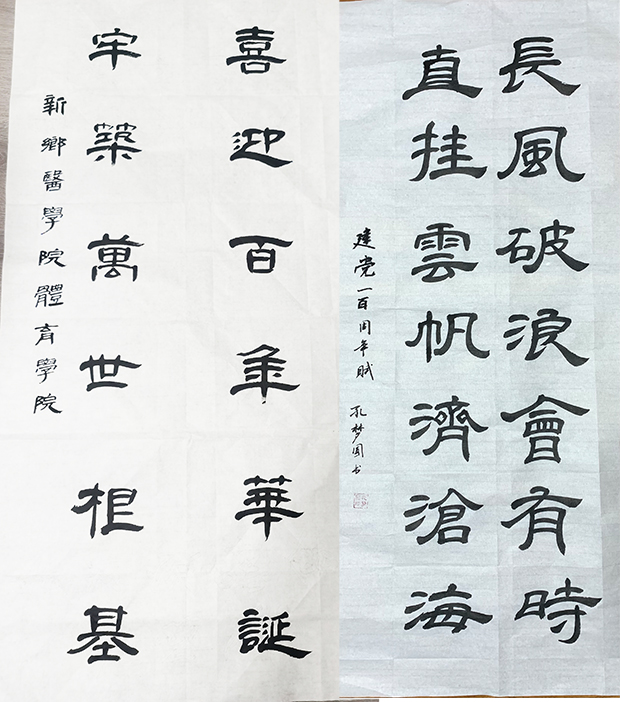 喜迎百年華誕
牢築萬世根基
新鄉醫學院體育學院
長風破浪會有時
直挂雲帆濟滄海
建党一百周年賦 孔梦圆书